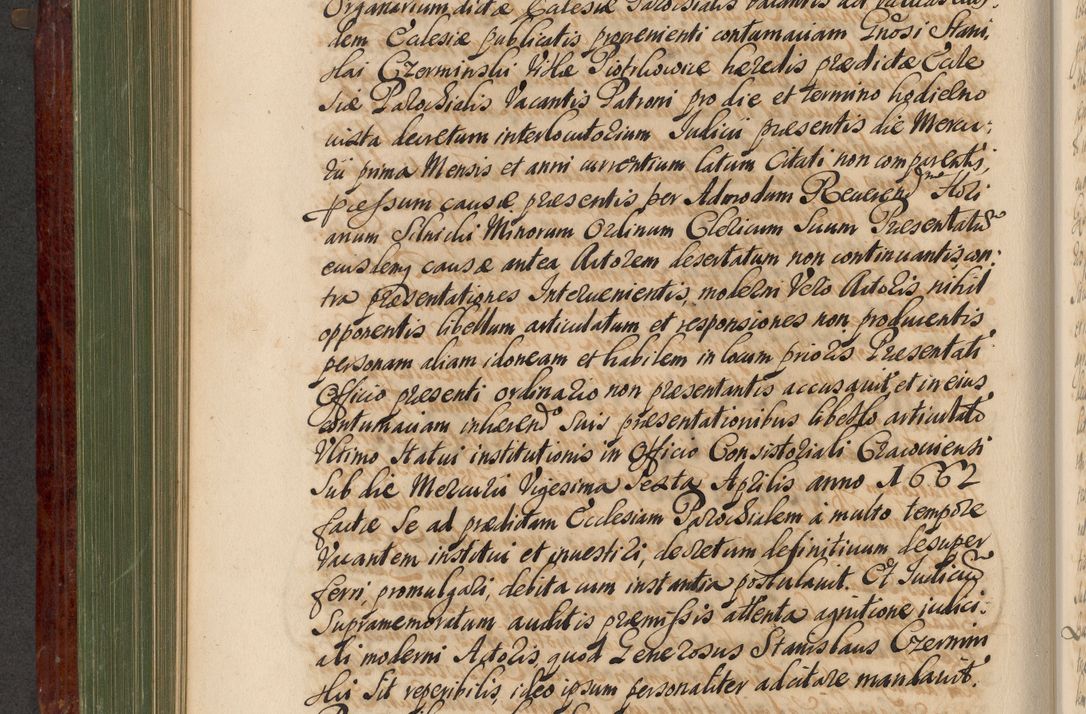 Organarium dictæ Ecclesiæ Parochialis vacantis ad valvas eius-
dem Ecclesiæ publicatis provenienti contumaciam Gnosi Stani,
slai Czerminski Villæ Piotrkowice hæredis prædictæ Eccle
siæ Parochialis Vacantis Patroni pro die et termino hodierno
iuxta decretum interlocutorium Iudicii præsentis die Mercu:
rii prima Mensis et anni currentium latum Citati non comparentis,
pressum causæ præsentis per Admodum Reverend Flori
anum Silnicki Minorum Ordinum Clericum Suum Præsentatū
eiusdem causæ antea Actorem desertatum non continuantis, con:
tra præsentationes Intervenientis, moderni Vero Actoris nihil
opponentis libellum articulatum et responsiones non producentis
personam aliam idoneam et habilem in locum prioris Præsentati
Officio præsenti ordinario non præsentantis accusavit, et in eius
contumaciam inherendo suis præsentationibus libello articulato
Ultimo Statui institutionis in Officio Consistoriali Cracoviensi
Sub die Mercurii Vigesima Sexta Aprilis anno 1662
factæ Se ad prædictam Ecclesiam Parochialem a multo tempore
Vacantem institui et investiri, decretum definitivum desuper
ferri, promulgari, debita cum instantia postulavit. Et Iudiciū
Supramemoratum auditis præmissis attenta agnitione iudici:
ali moderni Actoris, quod Generosus Stanislaus Czermin
ski sit reperibilis, ideo ipsum personaliter adcitare mandavit.